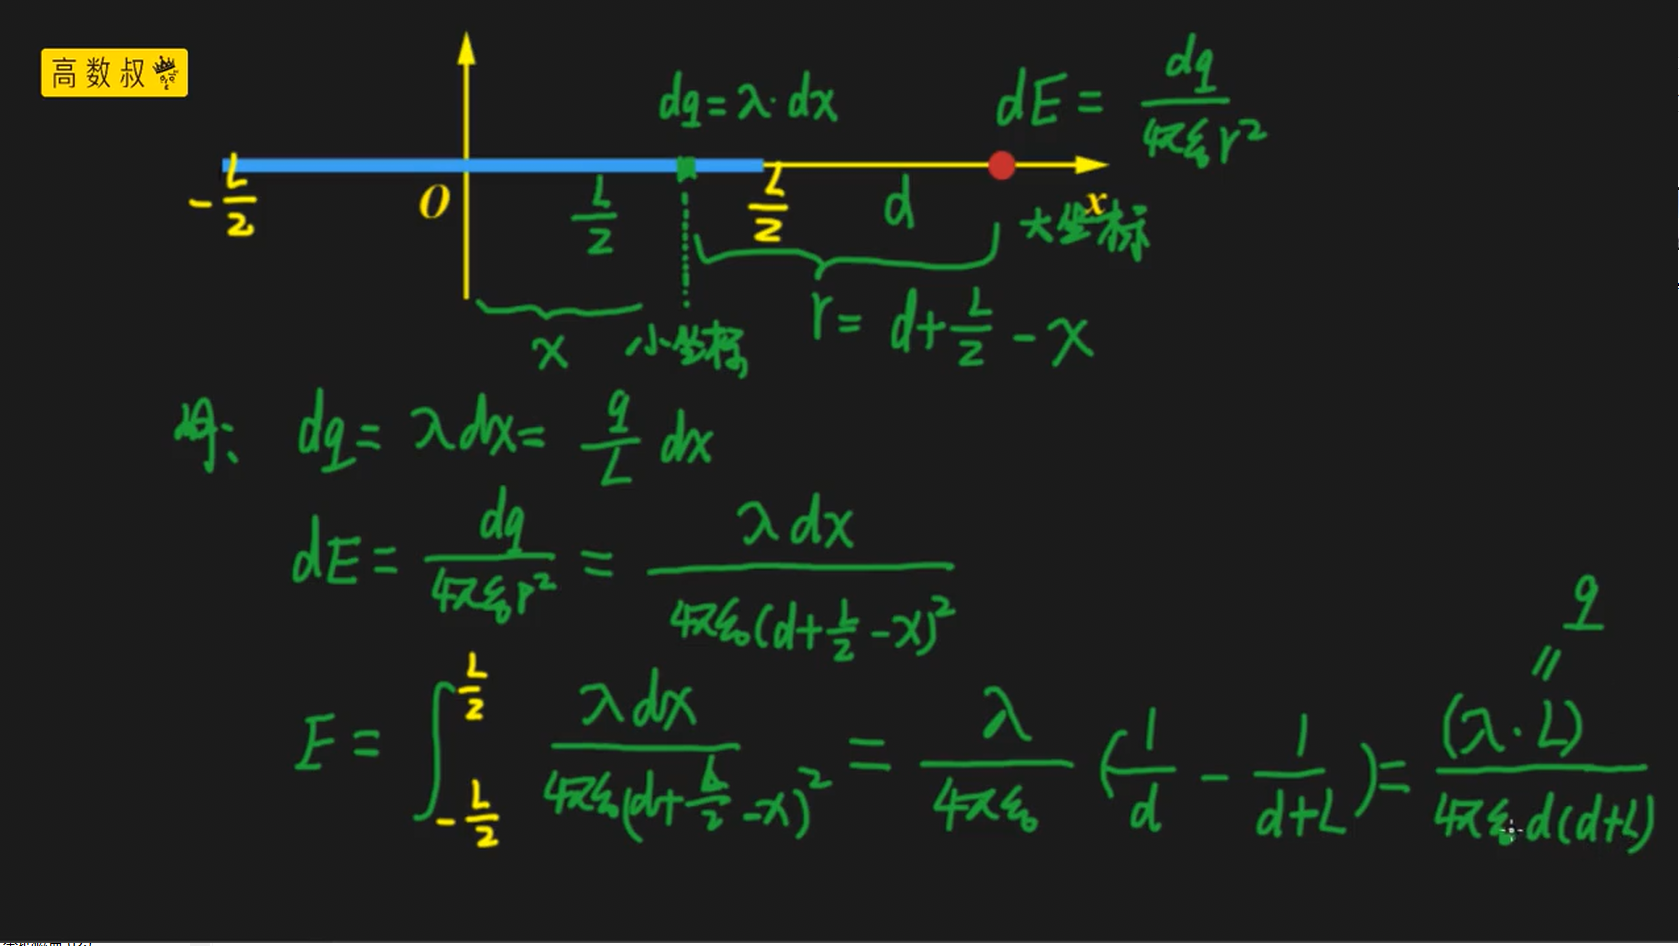 高数叔
dq = λ·dx
dE = dq / 4πε₀r²
-L/2
O
L/2
L/2
d
x
大坐标
x
小坐标
r = d + L/2 - x
dq = λdx = q/L dx
dE = dq / 4πε₀r² = λdx / 4πε₀(d + L/2 - x)²
E = ∫_{-L/2}^{L/2} λdx / 4πε₀(d + L/2 - x)² = λ / 4πε₀ (1/d - 1/(d+L)) = (λ·L) / 4πε₀d(d+L)
q
=